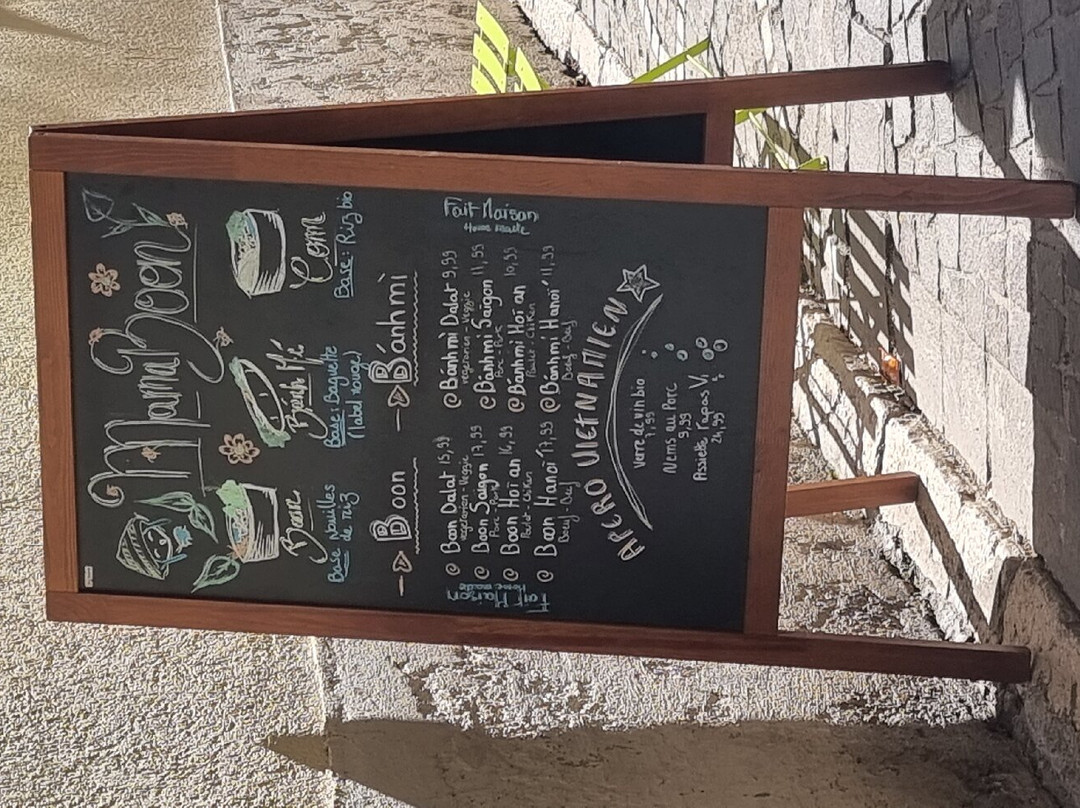 Mama Boon
Boon
Base Nouilles
de riz
Bánh Mí
Base: Baguette
(label rouge)
Com
Base: Riz bio
Boon
@ Boon Dalat 15,99
vegetarien - Veggie
@ Boon Saigon 17,99
Porc - Pork
@ Boon Hoï an 16,99
Poulet - Chiken
@ Boon Hanoï 17,99
Boeuf - Beef
Fait Maison
Home made
Bánhmì
@ Bánhmi Dalat 9,99
vegetarien - Veggie
@ Bánhmi Saigon 11,99
Porc - Pork
@ Bánhmi Hoï an 10,99
Poulet - Chiken
@ Bánhmi Hanoï 11,99
Boeuf - Beef
Fait Maison
Home made
APERO VIETNAMIEN
Verre de vin bio
7,99
Nems au Porc
9,99
Assiette Tapas V
24,99